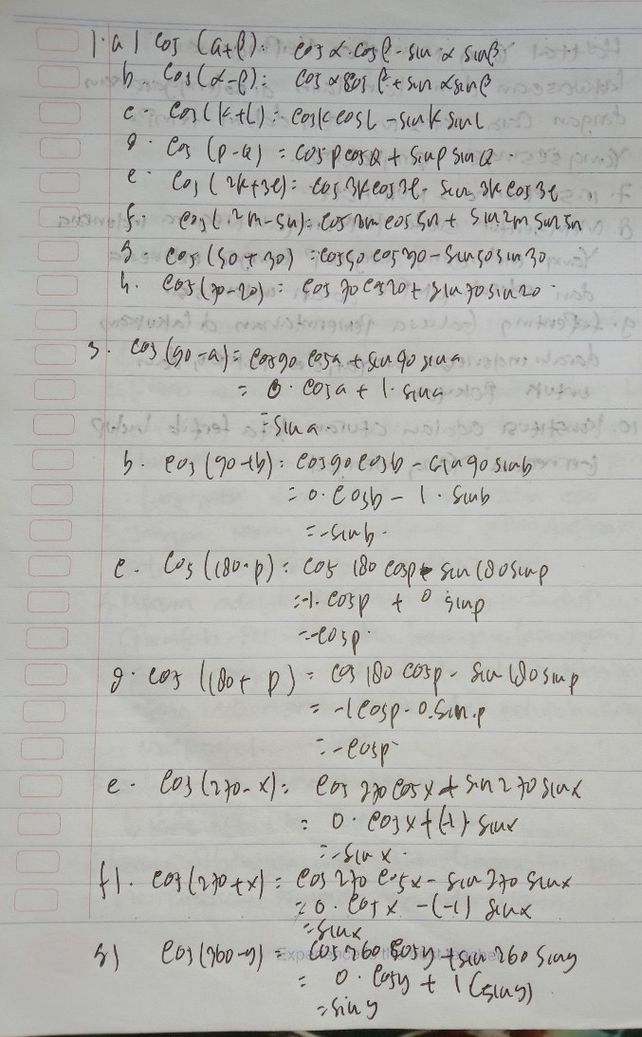 1. a) cos (α+β) = cos α . cos β - sin α sin β
b. cos (α-β) = cos α cos β + sin α sin β
c. cos (k+l) = cos k cos l - sin k sin l
d. cos (p-q) = cos p cos q + sin p sin q.
e. cos (2k+3l) = cos 3k cos 3l - sin 3k cos 3l
f. cos (2m-5n) = cos 2m cos 5n + sin 2m sin 5n
g. cos (50+30) = cos 50 cos 30 - sin 50 sin 30
h. cos (70-20) = cos 70 cos 20 + sin 70 sin 20.
3. cos (90-a) = cos 90 cos a + sin 90 sin a
= 0. cos a + 1. sin a
= sin a.
b. cos (90+b) = cos 90 cos b - sin 90 sin b
= 0. cos b - 1. sin b
= -sin b.
c. cos (180-p) = cos 180 cos p + sin 180 sin p
= -1. cos p + 0 sin p
= -cos p.
d. cos (180+p) = cos 180 cos p - sin 180 sin p
= -1 cos p - 0. sin. p
= -cos p
e. cos (270-x) = cos 270 cos x + sin 270 sin x
= 0. cos x + (-1). sin x
= -sin x.
f). cos (270+x) = cos 270 cos x - sin 270 sin x
= 0. cos x - (-1) sin x
= sin x
g) cos (360-y) = cos 360 cos y + sin 360 sin y
= 0. cos y + 1 (sin y)
= sin y